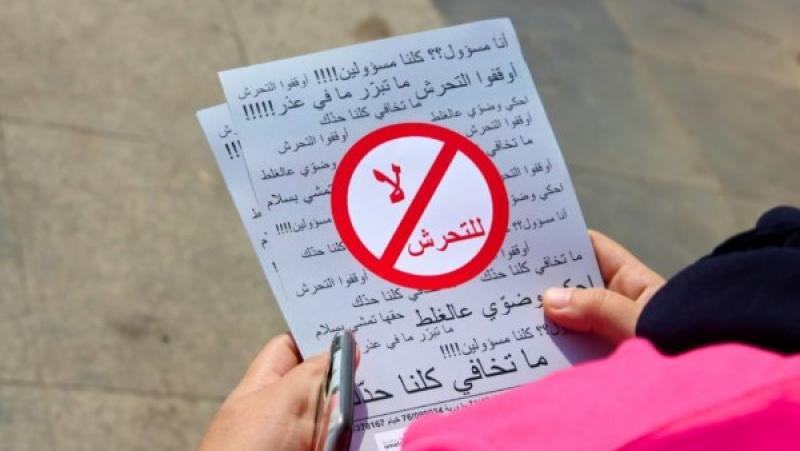 أنا مسؤول؟؟ كلنا مسؤولين!!!! أوقفوا التحرش
أوقفوا التحرش ما تبرّر ما في عذر!!!!!
احكي وضوّي عالغلط ما تخافي كلنا حدّك
أوقفوا التحرش أوقفوا التحرش
ما تخافي وضوّي عالغلط
احكي وضوّي تمشي بسلام
لا
للتحرش
أنا مسؤول؟؟ مسؤولين!!!!
ما تخافي كلنا حدّك أوقفوا التحرش
ما تخافي كلنا حدّك
احكي وضوّي عالغلط حقها تمشي بسلام
ما تبرّر ما في عذر
كلنا مسؤولين!!!!
ما تخافي كلنا حدّك